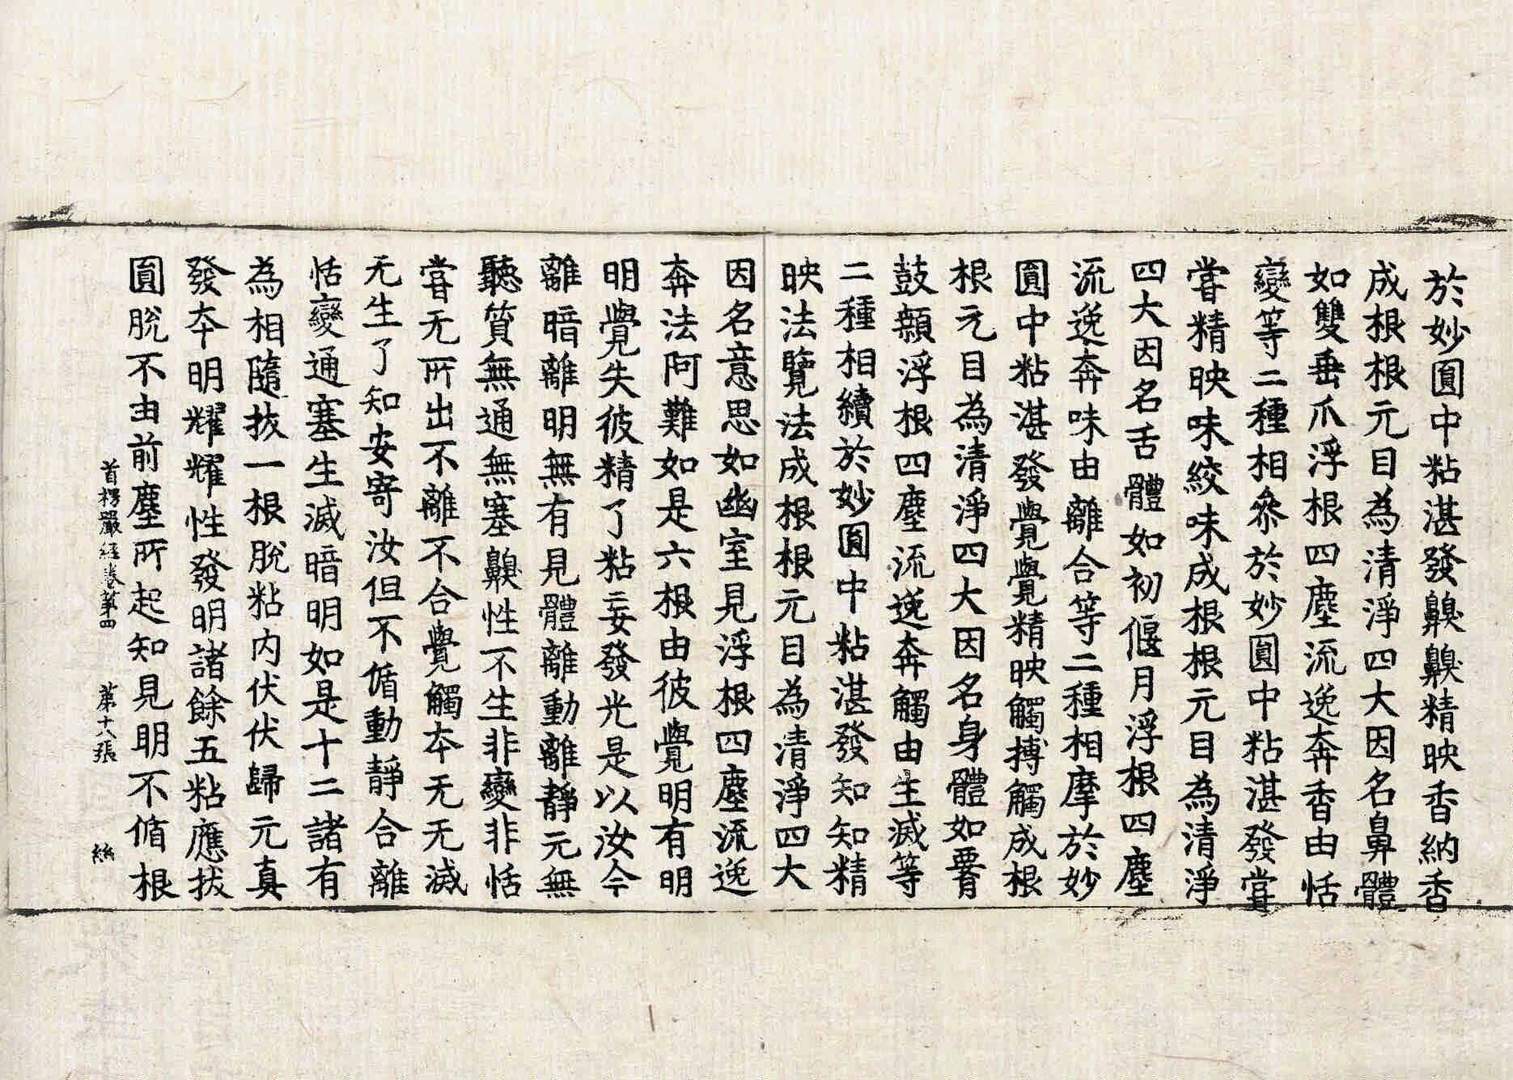 於妙圓中粘湛發齅齅精映香納香
成根根元目為清淨四大因名鼻體
如雙垂爪浮根四塵流逸奔香由恬
變等二種相叅於妙圓中粘湛發甞
甞精映味絞味成根根元目為清淨
四大因名舌體如初偃月浮根四塵
流逸奔味由離合等二種相摩於妙
圓中粘湛發覺覺精映觸搏觸成根
根元目為清淨四大因名身體如𦝫
鼓顙浮根四塵流逸奔觸由生滅等
二種相續於妙圓中粘湛發知知精
映法覽法成根根元目為清淨四大
因名意思如幽室見浮根四塵流逸
奔法阿難如是六根由彼覺明有明
明覺失彼精了粘妄發光是以汝今
離暗離明無有見體離動離靜元無
聽質無通無塞齅性不生非變非恬
甞无所出不離不合覺觸本无无滅
无生了知安寄汝但不循動靜合離
恬變通塞生滅暗明如是十二諸有
為相隨拔一根脫粘內伏伏歸元真
發本明耀耀性發明諸餘五粘應拔
圓脫不由前塵所起知見明不循根
首楞嚴經卷第四 第十八張